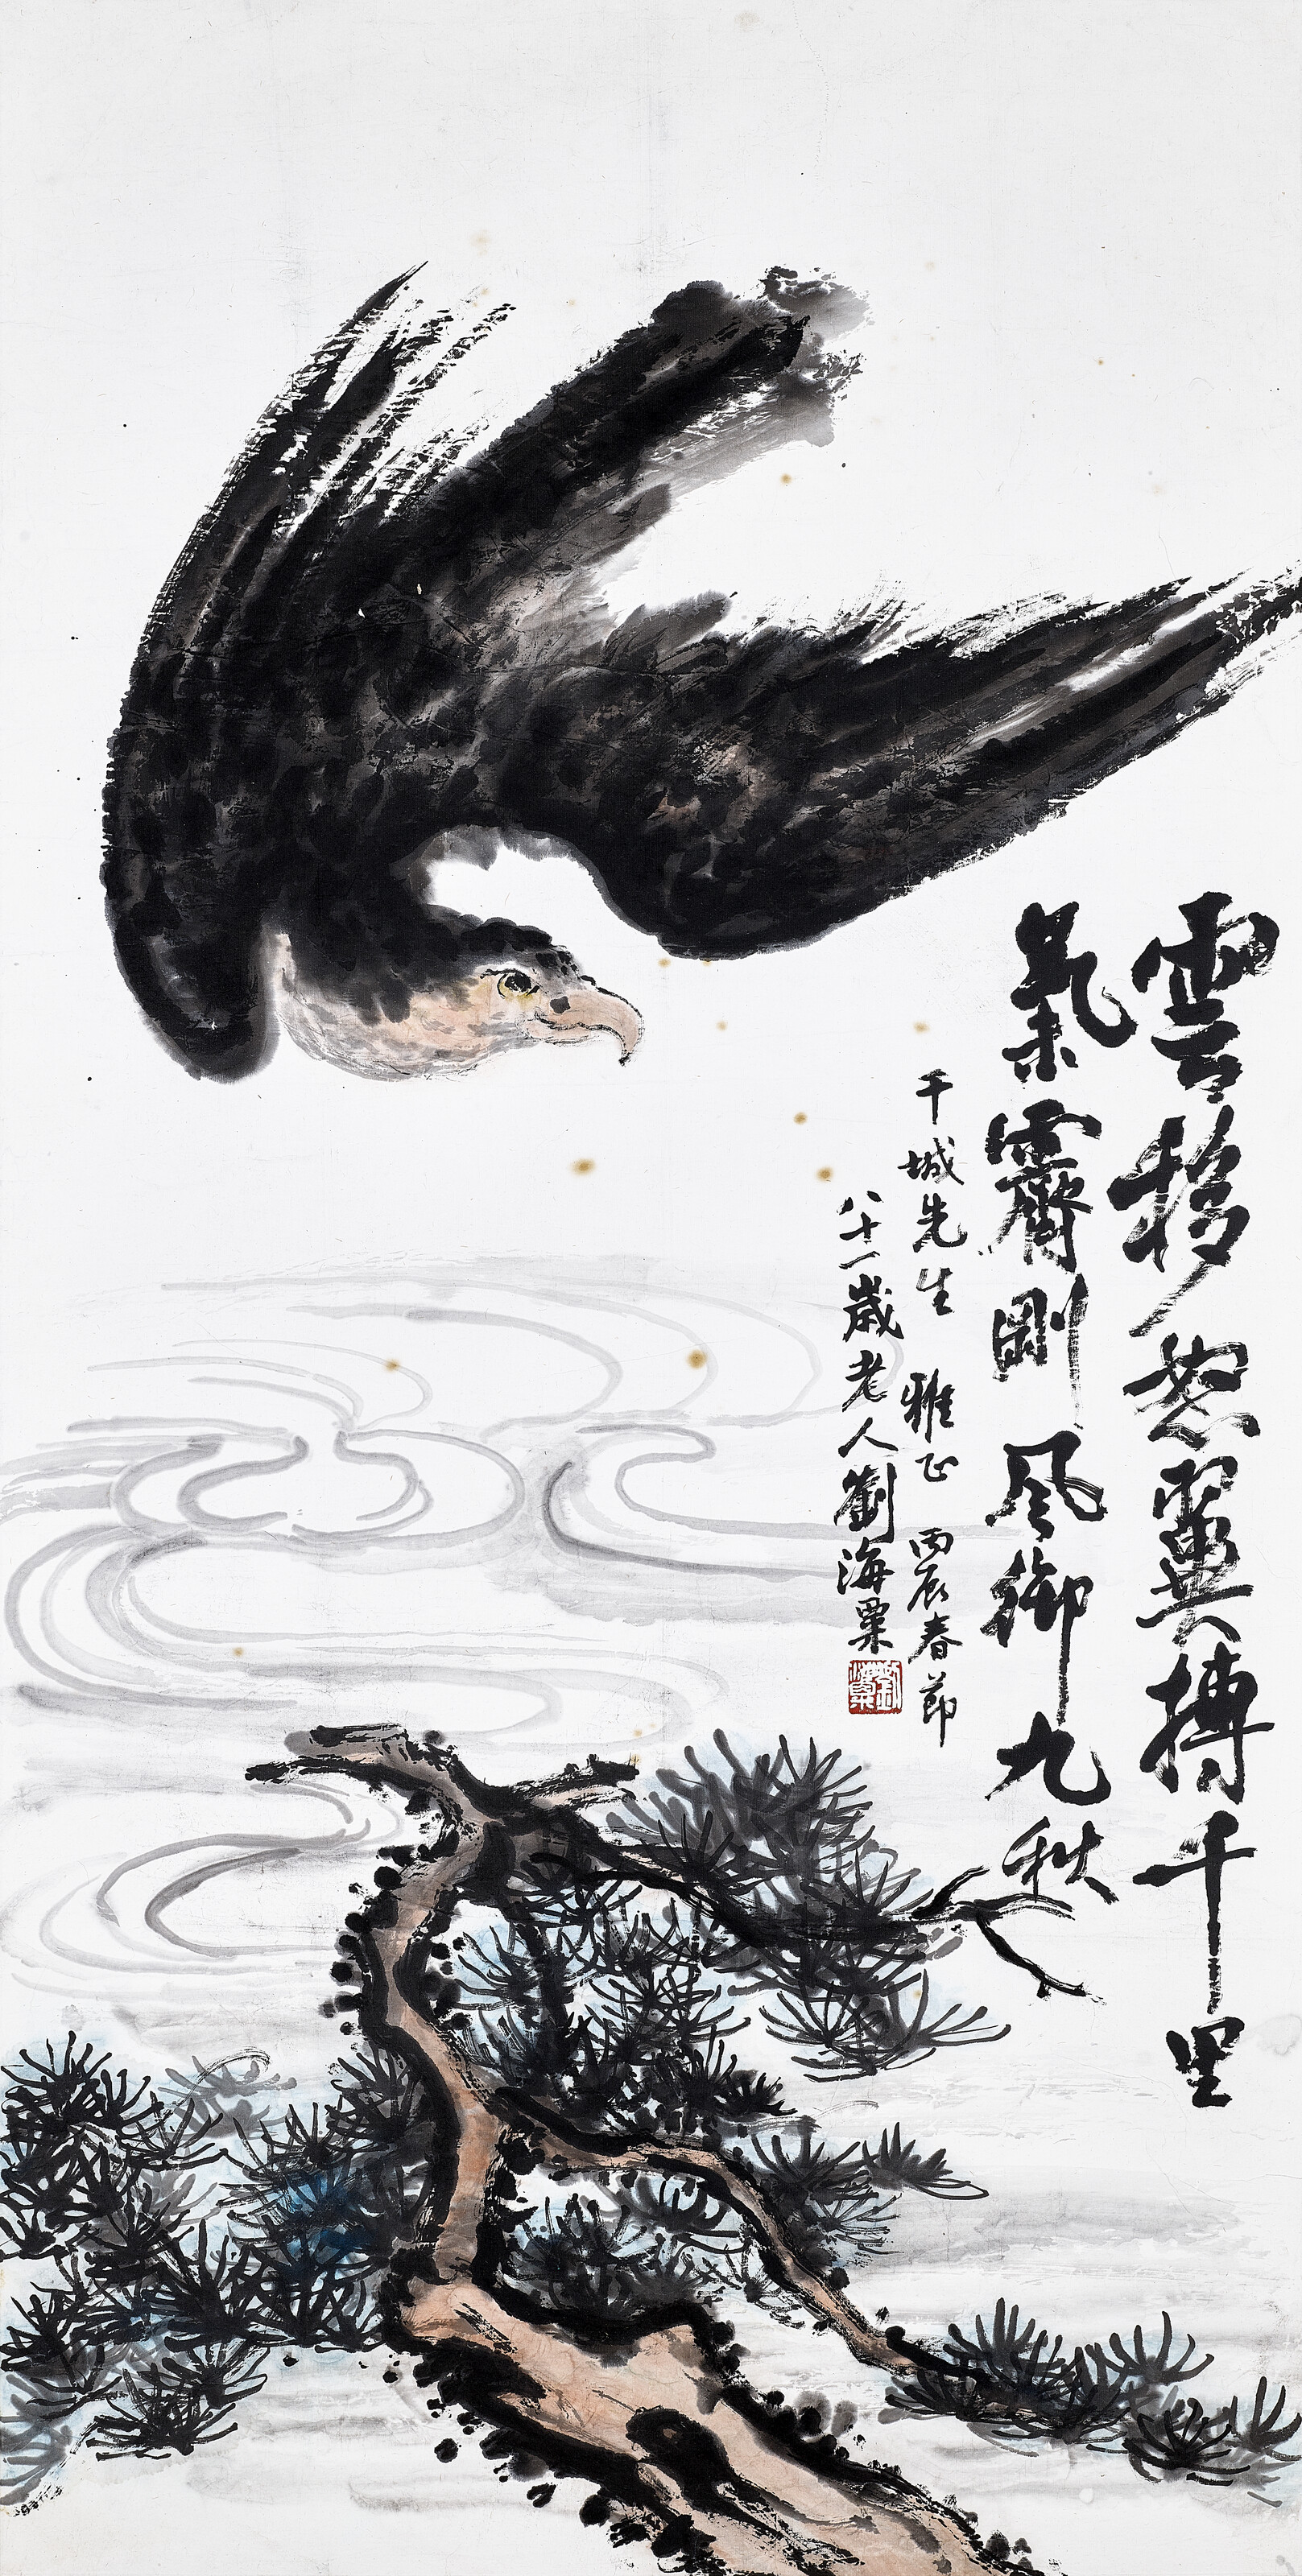 雲移怒翼搏千里
氣霽剛風御九秋
干城先生 雅正 丙辰春節
八十一歲老人劉海粟
劉海粟